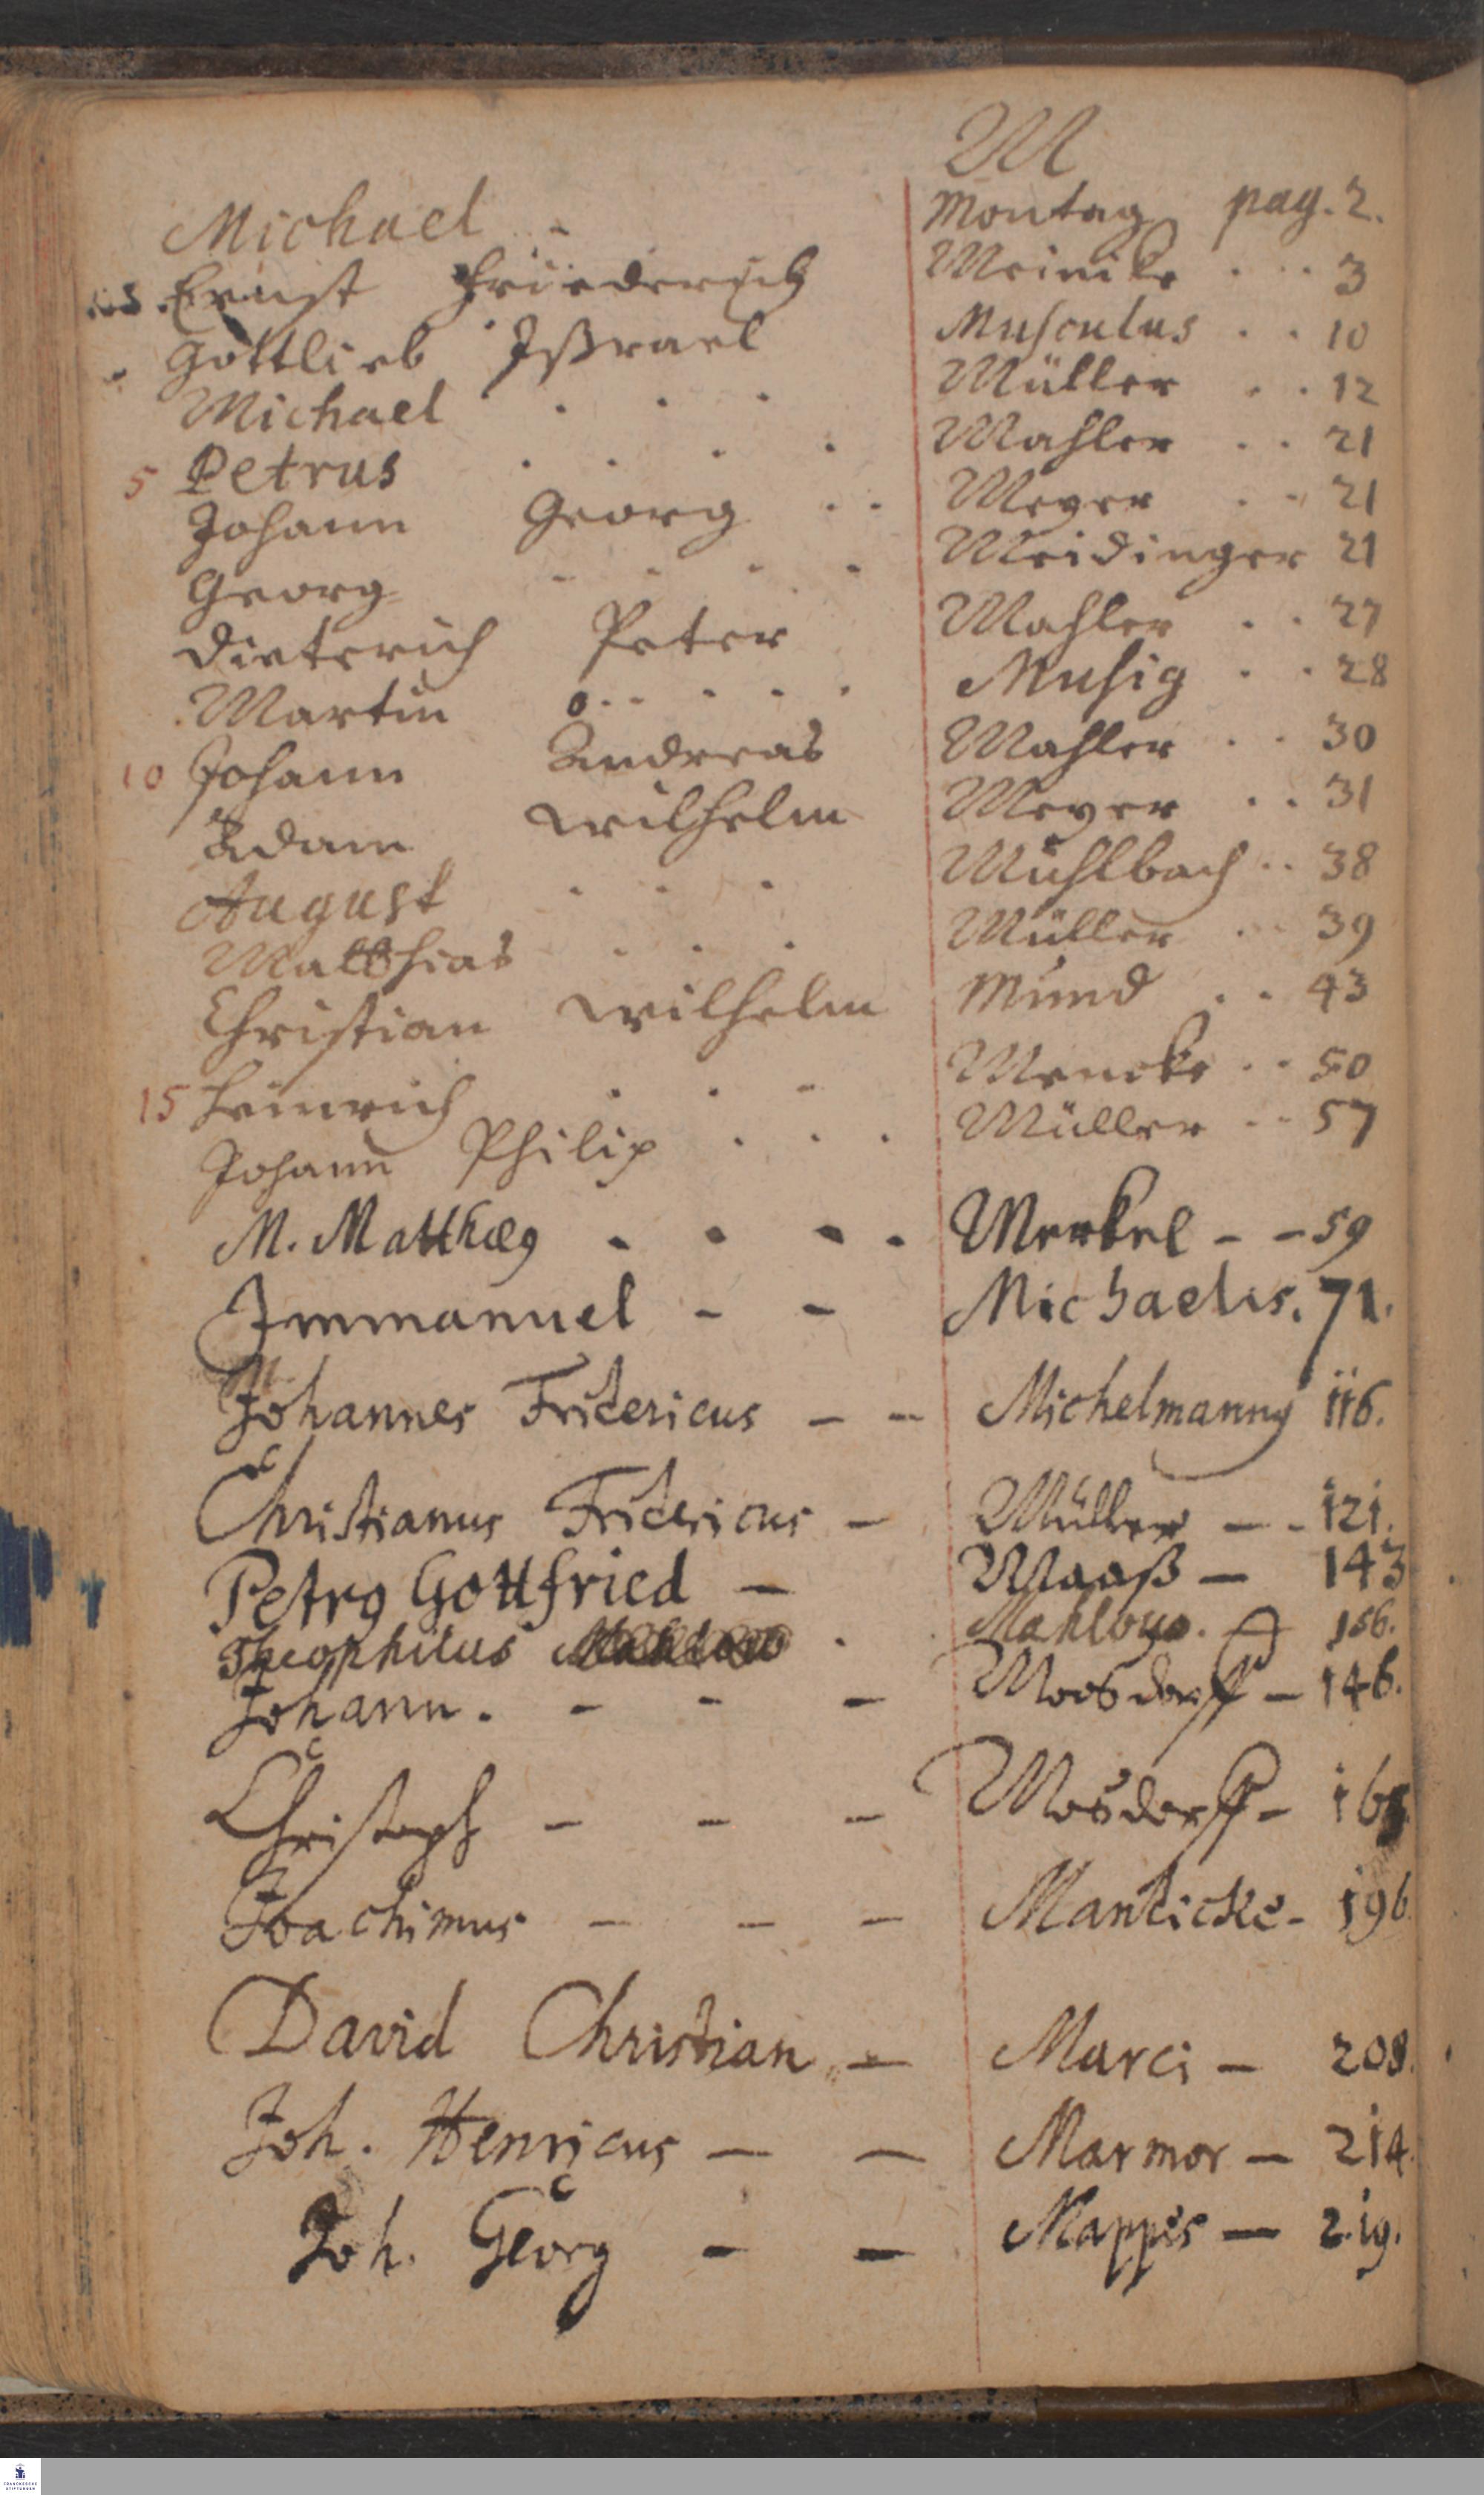 M
Michael - Montag pag. 2.
Ernst Friederich Meinike . . . 3
Gottlieb Ißrael Musculus . . 10
Michael . . . Müller . . 12
5 Petrus . . . . Mahler . . 21
Johann Georg . . Meyer . . 21
Georg - - - - Meidinger 21
Dieterich Peter Mahler . . 27
Martin . . . . . Musig . . 28
10 Johann Andreas Mahler . . 30
Adam Wilhelm Meyer . . 31
August . . . Mühlbach . . 38
Matthias . . . Müller . . 39
Christian Wilhelm Mund . . 43
15 Heinrich . . - Mencke . . 50
Johann Philip . . . Müller . . 57
M. Matthæ9 . . . . Merkel - - 59
Immanuel - - Michaelis. 71.
Johannes Fridericus - - Michelmann9 116.
Christianus Fridericus - Müller - - 121.
Petr9 Gottfried - Maaß - 143
Theophilus . . 156.
Johann. - - - Moosdorff - 146.
Christoph - - - Mosdorff -
Joachimus - - - Manticke - 196
David Christian - Marci - 208.
Joh. Henricus - - Marmor - 214.
Joh. Georg - - Mappes - 219.
FRANCKESCHE
STIFTUNGEN